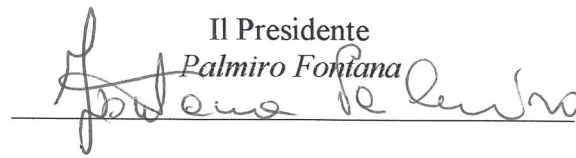 Il Presidente
Palmiro Fontana
Fontana Palmiro